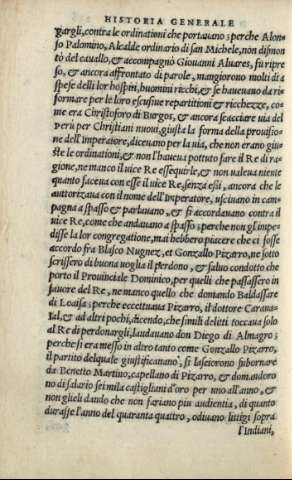 HISTORIA GENERALE
gargli, contra le ordinationi che portauano; perche Alon-
so Palomino, Alcalde ordinario di san Michele, non dismon
tò del cauallo, & accompagnò Giouanni Aluares, fu ripre
so, & ancora affrontato di parole, mangiorono molti di a
spese delli lor hospiti, huomini ricchi, & se haueuano da ri
formare per le loro escusiue repartitioni & ricchezze, co-
me era Christoforo di Burgos, & ancora scacciare uia del
perù per Christiani nuoui, giusta la forma della prouisio-
ne dell'imperatore, diceuano per la uia, che non erano giu-
ste le ordinationi, & non l'haueua pottuto fare il Re di ra-
gione, ne manco il uice Re essequirle, & non ualeua niente
quanto faceua con esse il uice Re, senza essi, ancora che le
autorizaua con il nome dell'imperatore, usciuano in cam-
pagna a spasso & parlauano, & si accordauano contra il
uice Re, come che andauano a spasso; perche non gl'impe-
disse la lor congregatione, mai hebbero piacere che ci fosse
accordo fra Blasco Nugnez, et Gonzallo Pizarro, ne sotto
scrissero di buona uoglia il perdono, & saluo condotto che
porto il Prouinciale Dominico, per quelli che passassero in
fauore del Re, ne manco quello che domando Baldassare
di Loaisa; perche eccettuaua Pizarro, il dottore Caraua-
ial, & ad altri pochi, dicendo, che simili delitti toccaua solo
al Re di perdonargli, laudauano don Diego di Almagro;
perche si era messo in altro tanto come Gonzallo Pizarro,
il partito delquale giustificauano, si lasciorono subornare
da Benetto Martino, capellano di Pizarro, & domandoro
no di salario sei mila castigliani d'oro per uno all'anno, &
non glieli dando che non fariano piu audientia, di quanto
durasse l'anno del quaranta quattro, odiuano littigi sopra
l'Indiani,